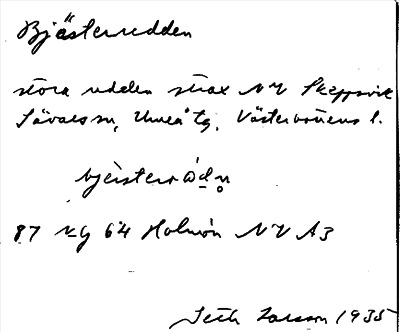 Bjästerudden
stora udden strax NV Skeppsvik
Sävars sn, Umeå tg, Västerbottens l.
bjèsterɷ́dn̥
87 NG 64 Holmön NV A3
Seth Larsson 1935